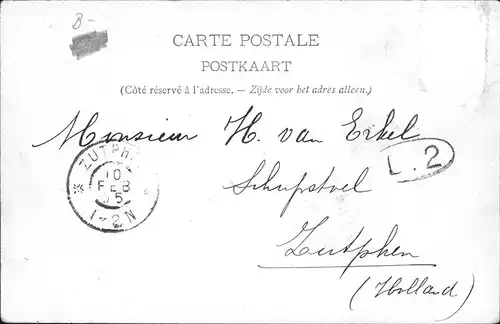 B-
CARTE POSTALE
POSTKAART
(Côté réservé à l'adresse. – Zijde voor het adres alleen.)
Monsieur H. van Erkel
L.2
ZUTPH
10
FEB
05
1-2N
Zutphen
(Holland)